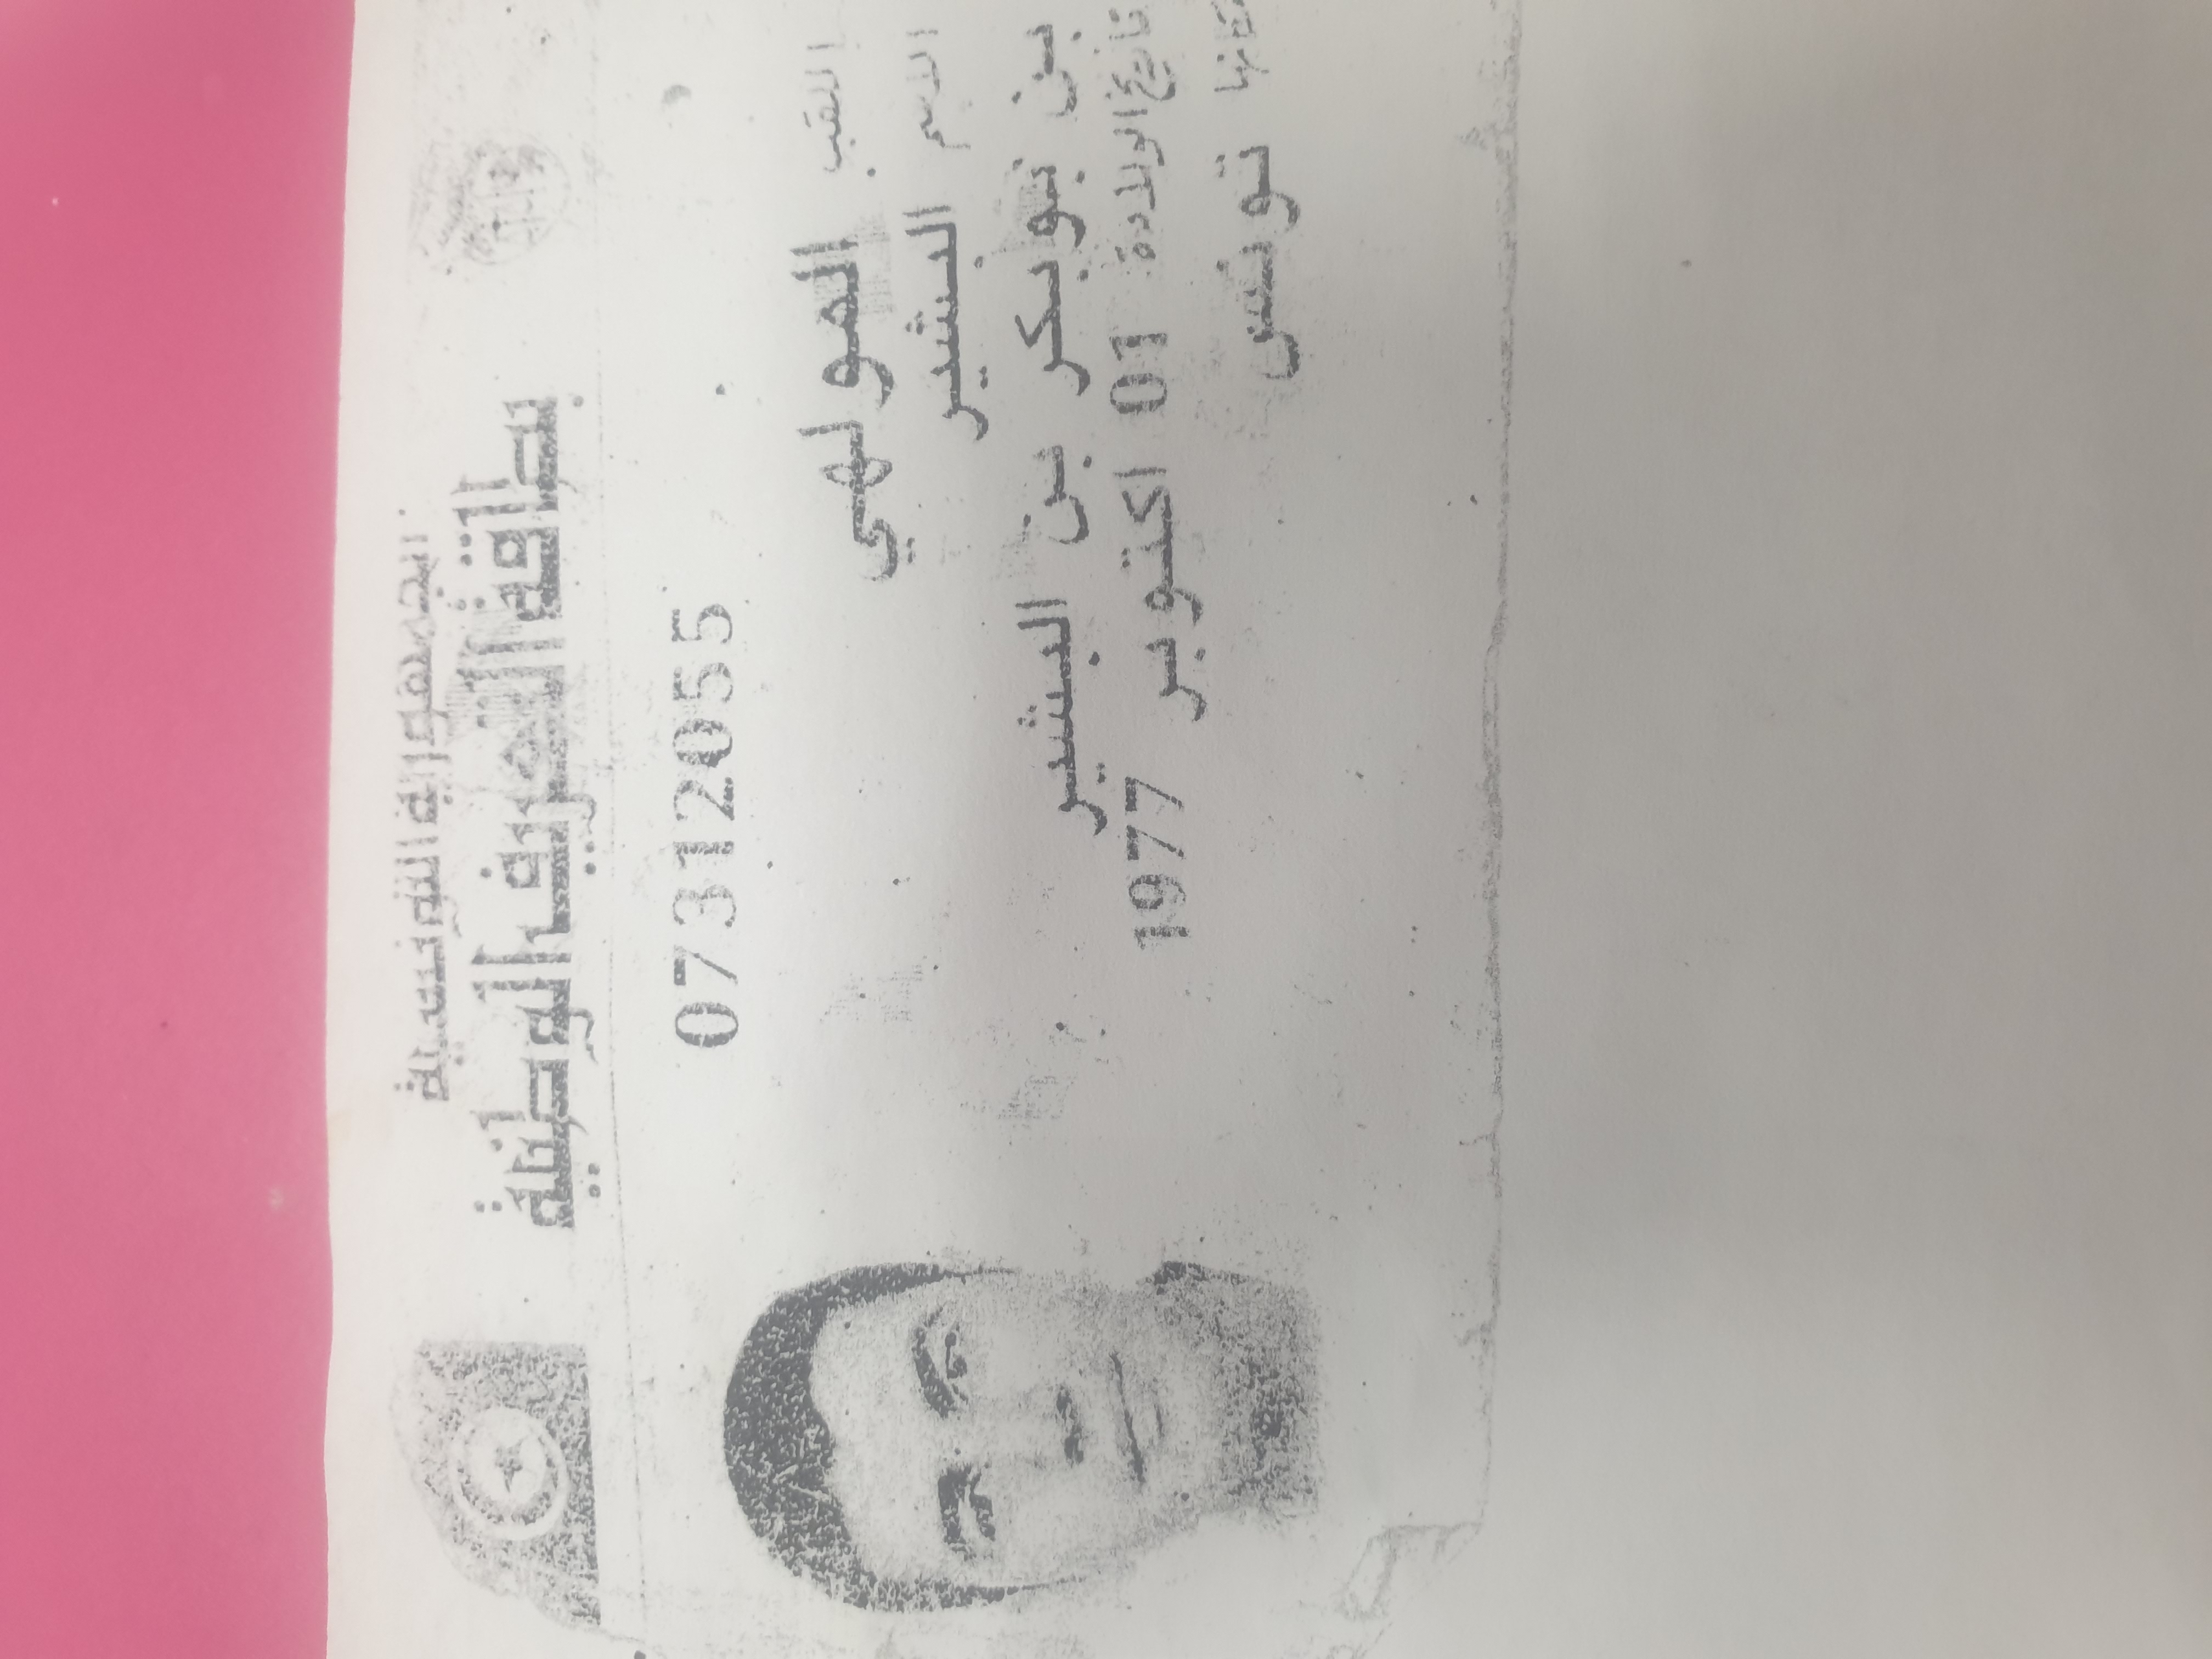 الجمهورية التونسية
بطاقة التعريف الوطنية
07312055
اللقب الهولهي
الاسم البشير
بن بوبكر بن البشير
تاريخ الولادة 01 اكتوبر 1977
مكانها تونس